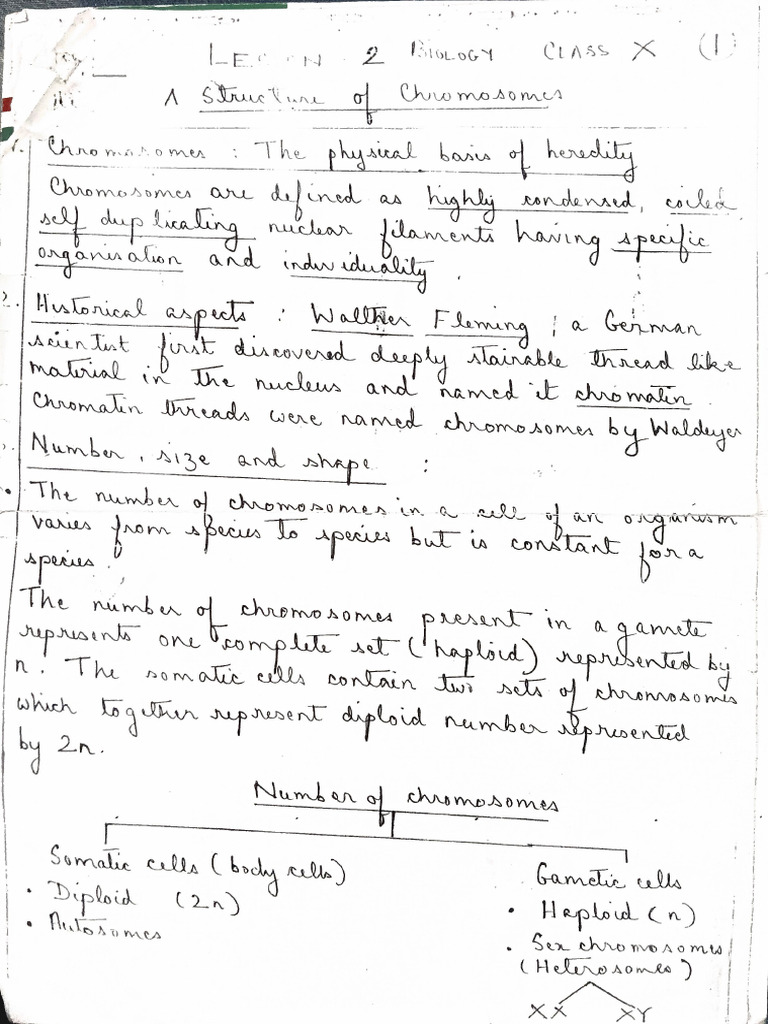 LE   N 2 BIOLOGY CLASS X (1)
Structure of Chromosomes
1. Chromosomes : The physical basis of heredity
Chromosomes are defined as highly condensed, coiled
self duplicating nuclear filaments having specific
organisation and individuality.
2. Historical aspects : Walther Fleming, a German
scientist first discovered deeply stainable thread like
material in the nucleus and named it chromatin.
Chromatin threads were named chromosomes by Waldeyer
Number, size and shape :
• The number of chromosomes in a cell of an organism
varies from species to species but is constant for a
species.
The number of chromosomes present in a gamete
represents one complete set (haploid) represented by
n. The somatic cells contain two sets of chromosomes
which together represent diploid number represented
by 2n.
Number of chromosomes
Somatic cells (body cells)
• Diploid (2n)
• Autosomes
Gametic cells
• Haploid (n)
• Sex chromosomes
(Heterosomes)
XX XY